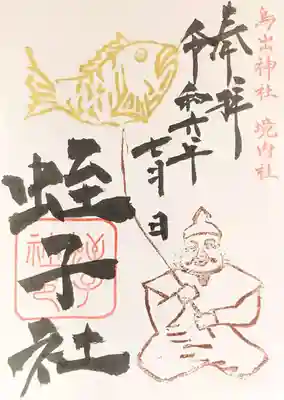 鳥出神社 境内社
奉拝
令和六年
七月 日
蛭子社